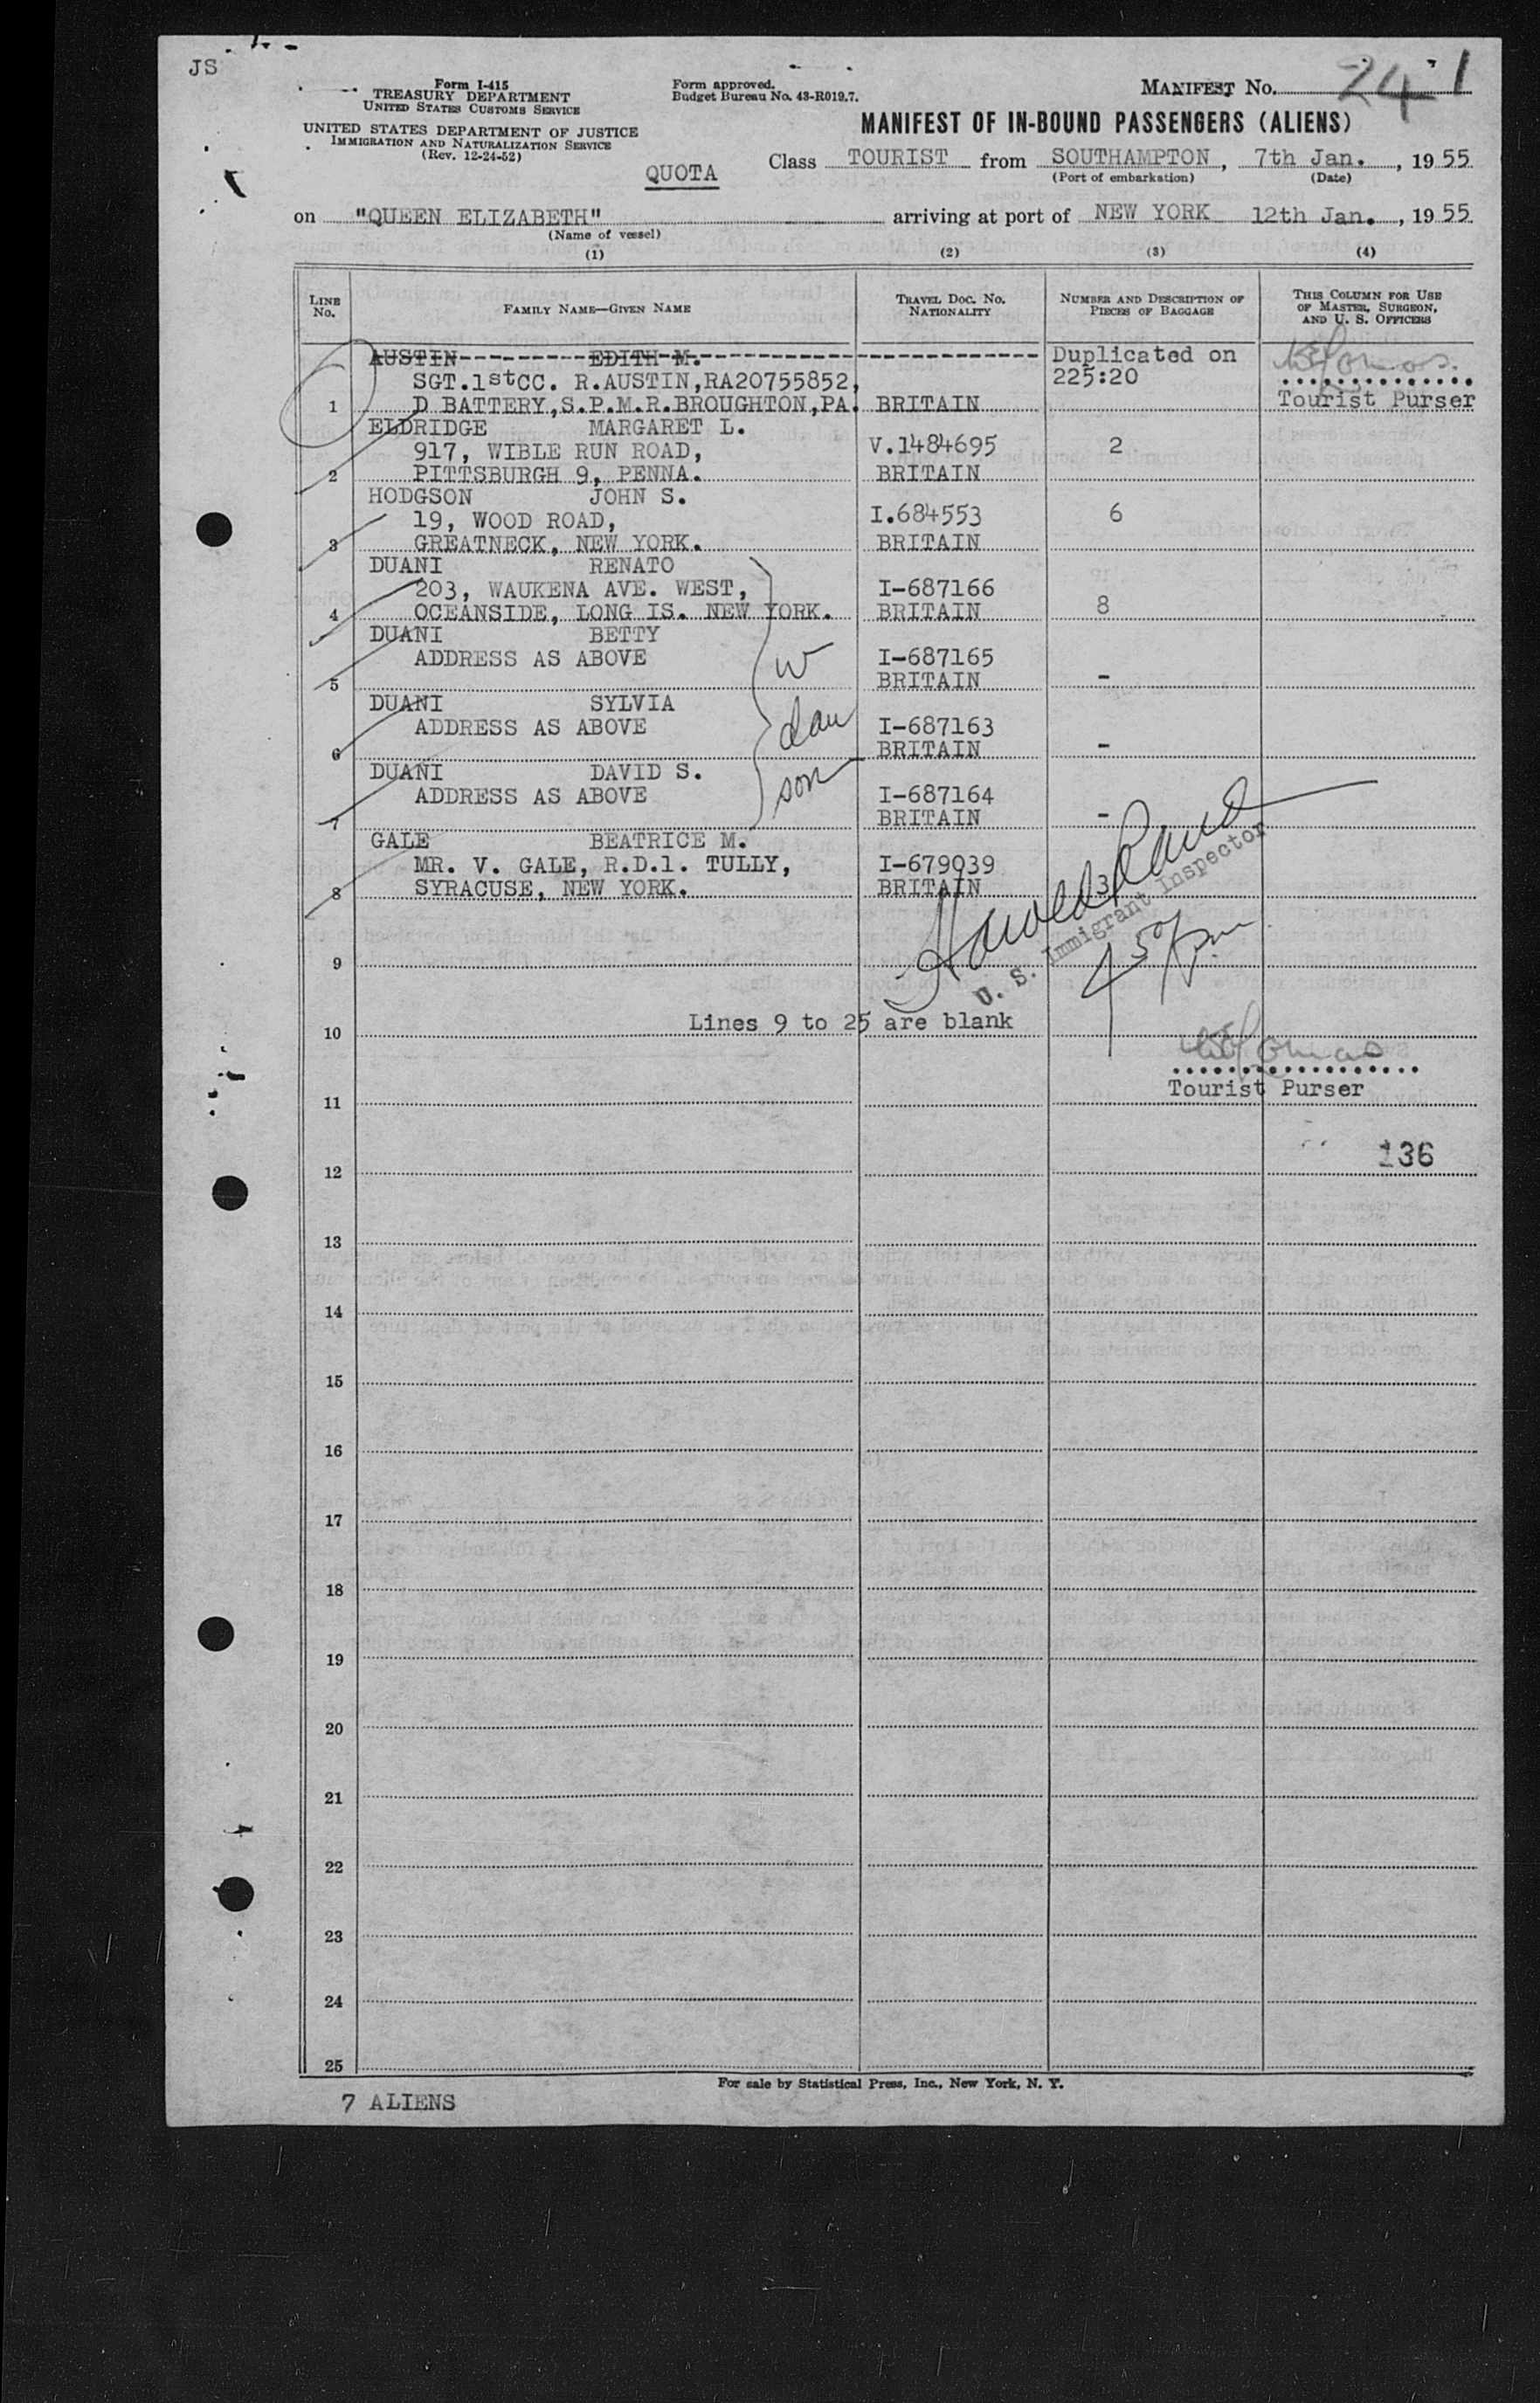 JS
Form I-415
TREASURY DEPARTMENT
UNITED STATES CUSTOMS SERVICE
UNITED STATES DEPARTMENT OF JUSTICE
IMMIGRATION AND NATURALIZATION SERVICE
(Rev. 12-24-52)
Form approved.
Budget Bureau No. 43-R019.7.
MANIFEST No. 241
MANIFEST OF IN-BOUND PASSENGERS (ALIENS)
QUOTA
Class TOURIST from SOUTHAMPTON, 7th Jan., 1955
(Port of embarkation) (Date)
on "QUEEN ELIZABETH" arriving at port of NEW YORK 12th Jan., 1955
(Name of vessel)
(1) (2) (3) (4)
LINE No. FAMILY NAME—GIVEN NAME TRAVEL DOC. No. NATIONALITY NUMBER AND DESCRIPTION OF PIECES OF BAGGAGE THIS COLUMN FOR USE OF MASTER, SURGEON, AND U. S. OFFICERS
AUSTIN EDITH M. Duplicated on
SGT.1stCC. R.AUSTIN,RA20755852, 225:20
1 D BATTERY,S.P.M.R.BROUGHTON,PA. BRITAIN Tourist Purser
ELDRIDGE MARGARET L.
917, WIBLE RUN ROAD, V.1484695 2
2 PITTSBURGH 9, PENNA. BRITAIN
HODGSON JOHN S.
19, WOOD ROAD, I.684553 6
3 GREATNECK, NEW YORK. BRITAIN
DUANI RENATO
203, WAUKENA AVE. WEST, I-687166
4 OCEANSIDE, LONG IS. NEW YORK. BRITAIN 8
DUANI BETTY
ADDRESS AS ABOVE w I-687165
5 BRITAIN -
DUANI SYLVIA
ADDRESS AS ABOVE dau I-687163
6 BRITAIN -
DUANI DAVID S.
ADDRESS AS ABOVE son I-687164
7 BRITAIN -
GALE BEATRICE M.
MR. V. GALE, R.D.1. TULLY, I-679039
8 SYRACUSE, NEW YORK. BRITAIN 3
Harold
U. S. Immigrant Inspector
9
Lines 9 to 25 are blank
10
Tourist Purser
11
136
12
13
14
15
16
17
18
19
20
21
22
23
24
25
For sale by Statistical Press, Inc., New York, N. Y.
7 ALIENS